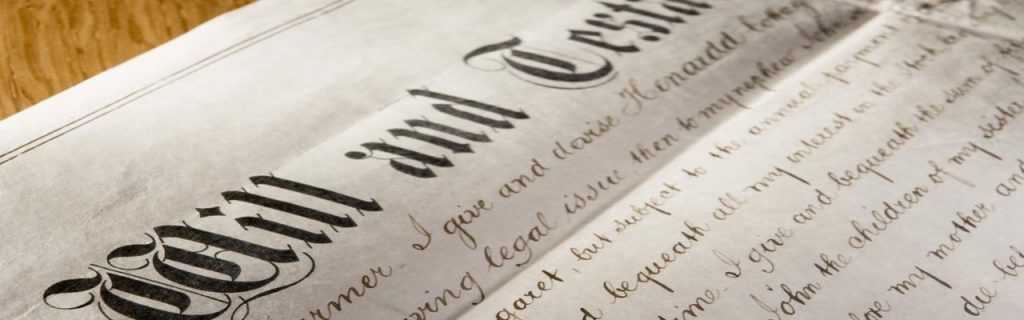 Will and Testa
rmer. I give and devise Henardd Cottage
ving legal issue then to my nephew John
garet, but subject to the annual payment
d bequeath all my interest in the stock of
time. I give and bequeath the sum of
John the children of my sister
ove my mother and
die be